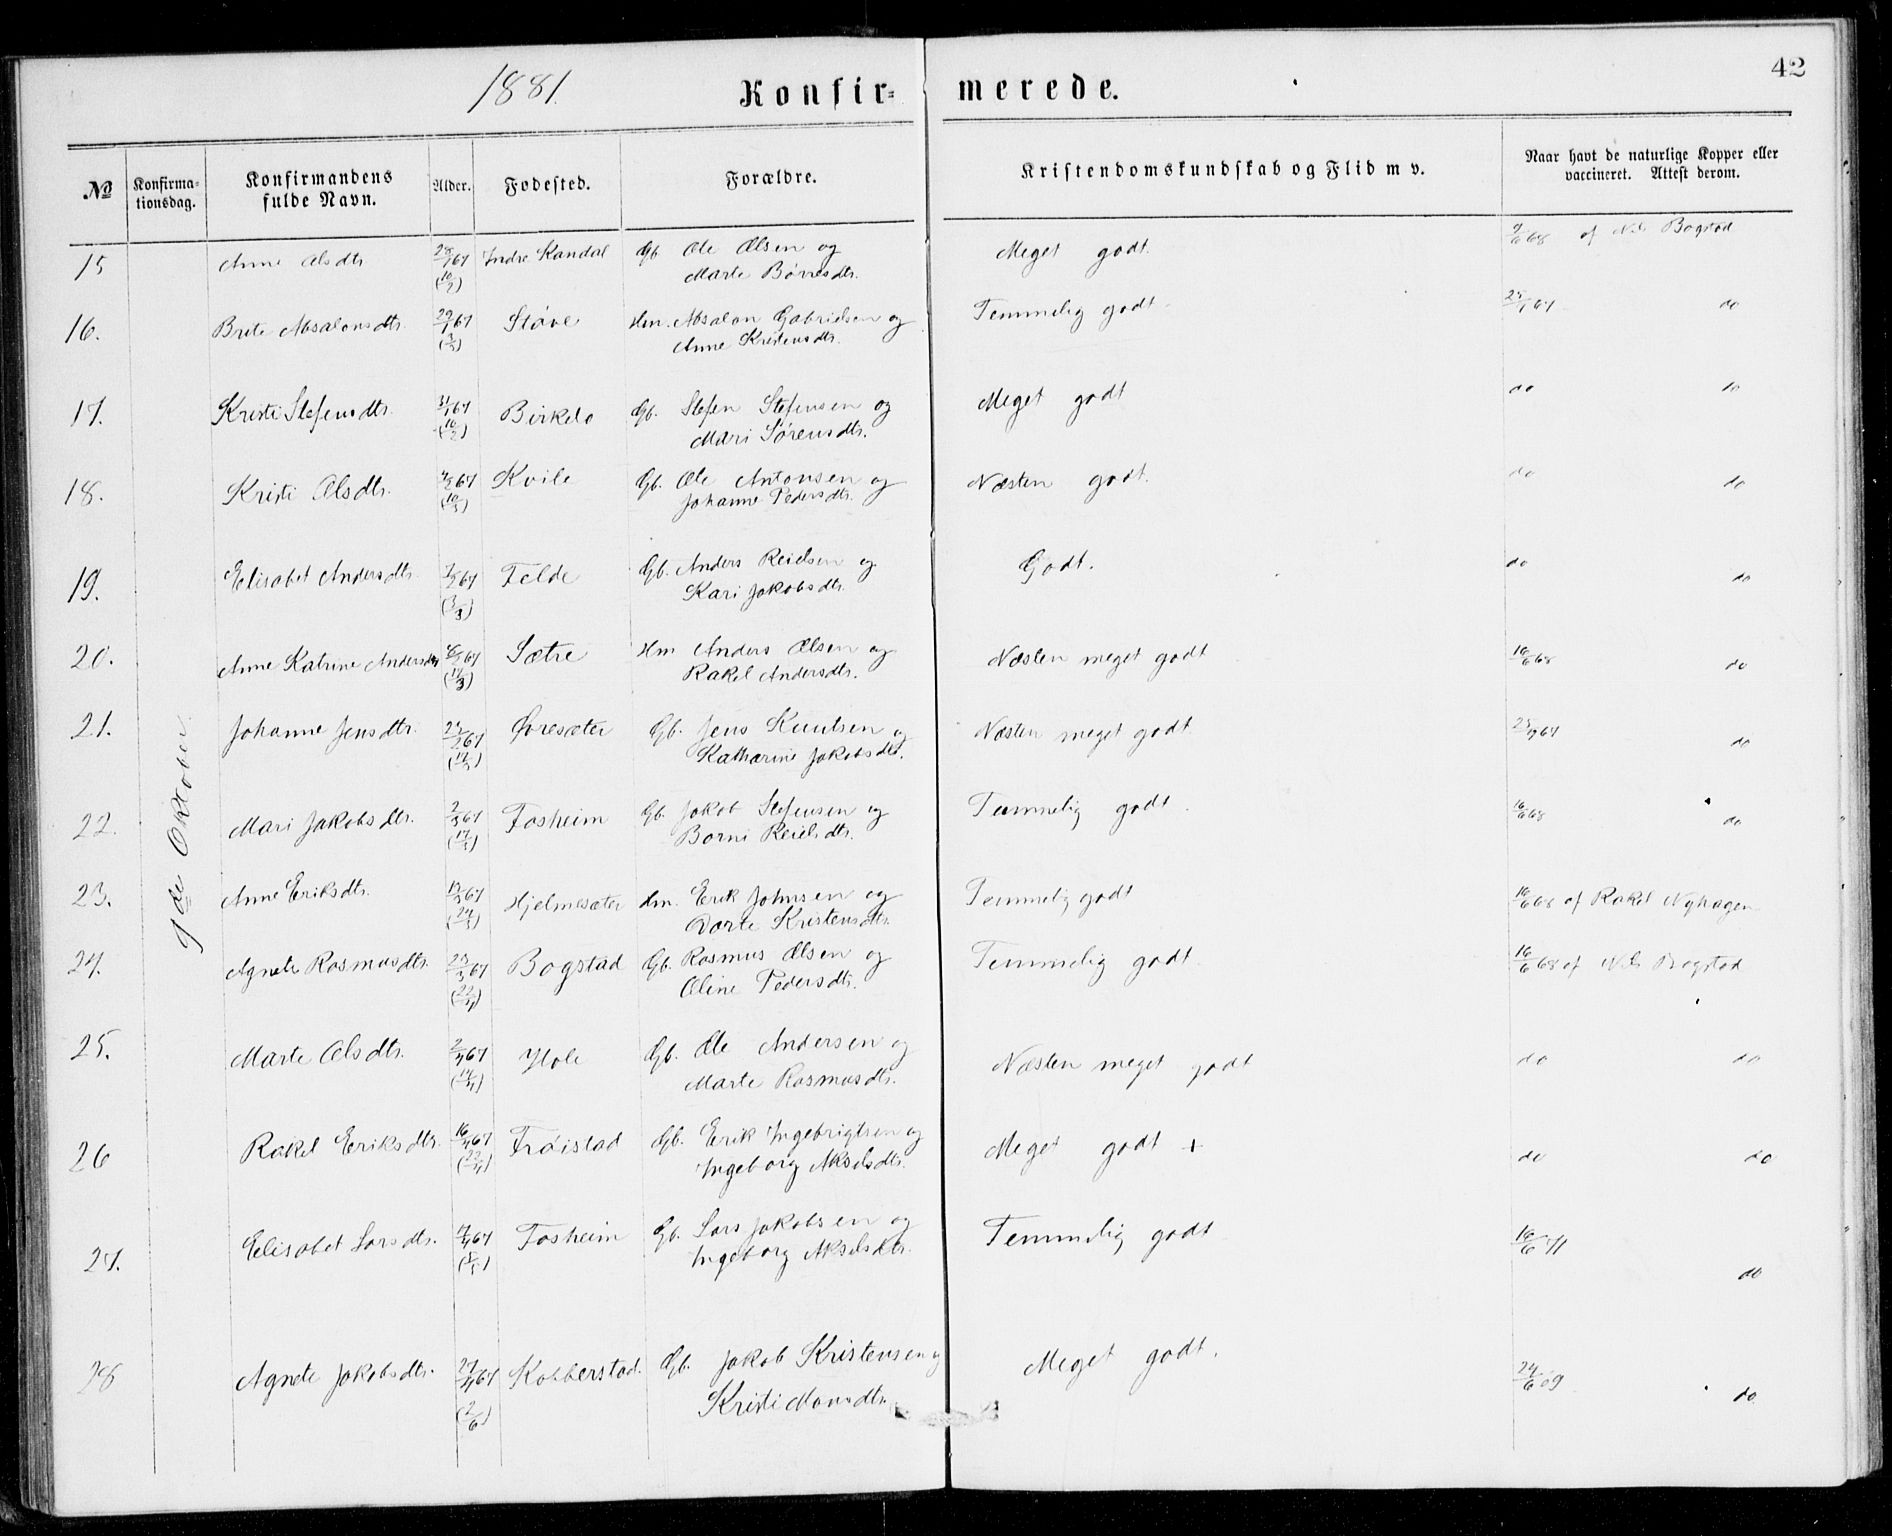 1881.
Konfir-
merede.
42
№
Konfirma-
tionsdag.
Konfirmandens
fulde Navn.
Alder.
Fodested.
Forældre.
Kristendomskundskab og Flid m v.
Naar havt de naturlige Kopper eller
vaccineret. Attest derom.
9de Oktober
15 Anne Olsdtr. Indre Kandal Gb. Ole Olsen og
Marte Børresdtr.
Meget godt. 9/6 68 af Nils Bogstad
16. Brite Absalonsdtr. 29/1 67 Støve Hm. Absalon Gabrielsen og
Anne Kristensdtr.
Temmelig godt do
17. Kristi Stefensdtr. 31/1 67 Birkelo Gb. Stefen Stefensen og
Mari Sørensdtr.
Meget godt do do
18. Kristi Olsdtr. Kvile Gb. Ole Antonsen og
Johanne Pedersdtr.
Næsten godt. do do
19. Elisabet Andersdtr. Felde Gb. Anders Reielsen og
Kari Jakobsdtr.
Godt. do do
20. Anne Katrine Andersdtr. Sætre Hm Anders Olsen og
Rakel Andersdtr.
Næsten meget godt 16/6 68 do
21. Johanne Jensdtr. Øresæter Gb. Jens Knutsen og
Katharine Jakobsdtr.
Næsten meget godt do
22. Mari Jakobsdtr. 2/3 67 Fosheim Gb. Jakob Stefensen og
Borni Reielsdtr.
Temmelig godt 16/6 68 do
23. Anne Eriksdtr. Hjelmesæter Hm. Erik Johnsen og
Dorte Kristensdtr.
Temmelig godt 16/6 68 af Rakel Nyhagen
24. Agnete Rasmusdtr. 23/3 67 Bogstad Gb. Rasmus Olsen og
Oline Pedersdtr.
Temmelig godt. 16/6 68 af Nils Bogstad
25. Marte Olsdtr. 2/4 67
(14/4) Hole Gb. Ole Andersen og
Marte Rasmusdtr.
Næsten meget godt do do
26 Rakel Eriksdtr. 16/4 67
(22/4) Frøistad Gb. Erik Ingebrigtsen og
Ingeborg Akselsdtr.
Meget godt + do do
27. Elisabet Larsdtr. Fosheim Gb. Lars Jakobsen og
Ingeborg Akselsdtr.
Temmelig godt 16/6 71 do
28 Agnete Jakobsdtr. 27/4 67
(2/6) Kobberstad. Gb. Jakob Kristensen og
Kristi Monsdtr.
Meget godt. 24/6 69 do